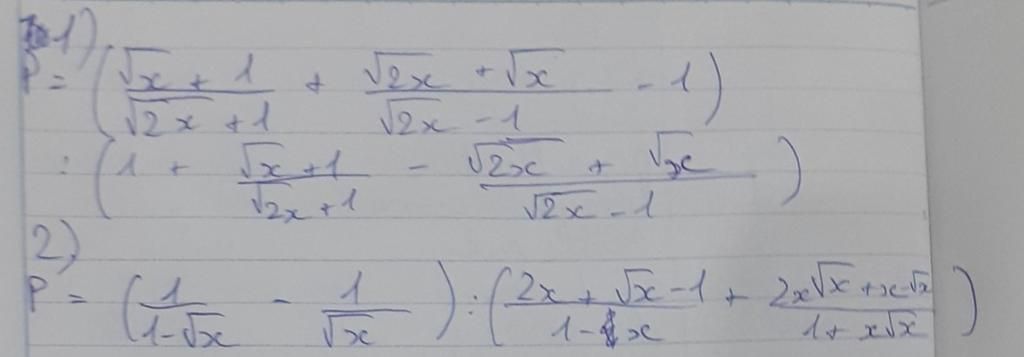 1)
P = ( (√x + 1)/(√2x + 1) + (√2x + √x)/(√2x - 1) - 1 )
: ( 1 + (√x + 1)/(√2x + 1) - (√2x + √x)/(√2x - 1) )
2)
P = ( 1/(1-√x) - 1/√x ) : ( (2x + √x - 1)/(1 - x) + (2x√x + x - √x)/(1 + x√x) )